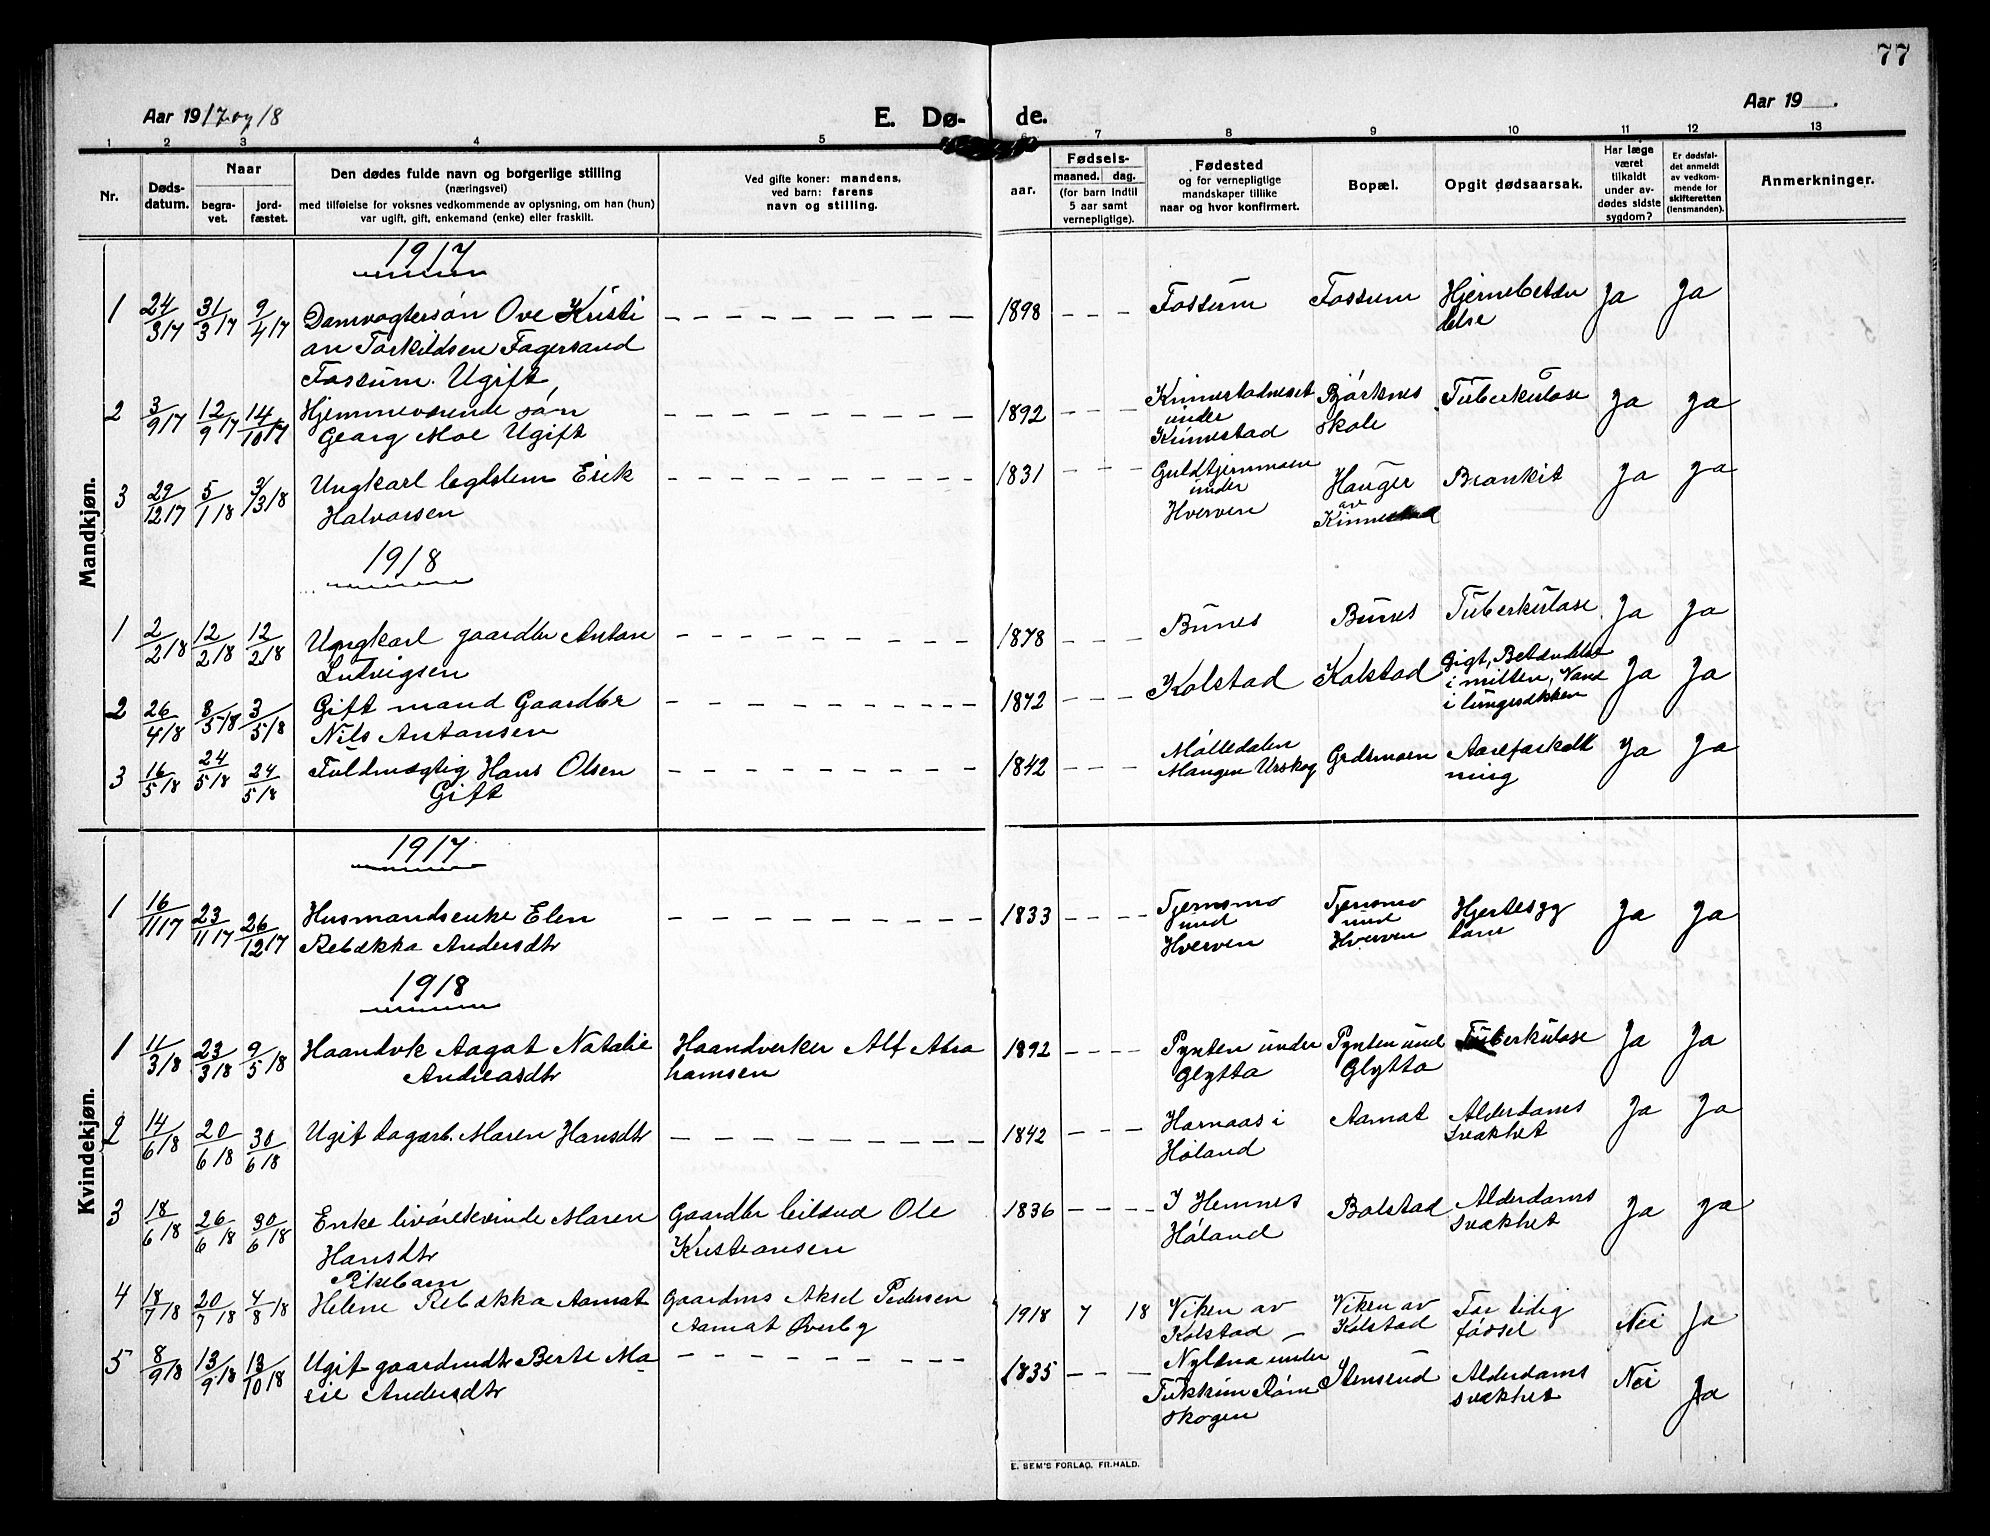 77
Aar 1917 og 18
E. Dø-
de.
Aar 19    .
1 2 3 4 5 6 7 8 9 10 11 12 13
Nr.
Døds-
datum.
Naar
begra-
vet.
jord-
fæstet.
Den dødes fulde navn og borgerlige stilling
(næringsvei)
med tilføielse for voksnes vedkommende av oplysning, om han (hun)
var ugift, gift, enkemand (enke) eller fraskilt.
Ved gifte koner: mandens,
ved barn: farens
navn og stilling.
aar.
Fødsels-
maaned. dag.
(for barn indtil
5 aar samt
vernepligtige).
Fødested
og for vernepligtige
mandskaper tillike
naar og hvor konfirmert.
Bopæl.
Opgit dødsaarsak.
Har læge
været
tilkaldt
under av-
dødes sidste
sygdom?
Er dødsfal-
det anmeldt
av vedkom-
mende for
skifteretten
(lensmanden).
Anmerkninger.
Mandkjøn.
1917
1 24/3 17 31/3 17 9/4 17 Damvogtersøn Ove Kristi — — — 1898 — — — Fossum Fossum Hjernebetæn Ja Ja
an Torkildsen Fagersand delse
Fossum. Ugift,
2 3/9 17 12/9 17 14/10 17 Hjemmeværende søn — — — 1892 — — — Kinnestadneset Bjørknes Tuberkulose Ja Ja
Georg Moe Ugift under skole
Kinnestad
3 29/12 17 5/1 18 3/3 18 Ungkarl leglslem Erik — — — 1831 — — — Guldtjernmoen Hauger Bronkit Ja Ja
Halvorsen under av
Hverven Kinnestad
1918
1 2/2 18 12/2 18 12/2 18 Ungkarl gaardbr Anton — — — 1878 — — — Bunes Bunes Tuberkulose Ja Ja
Ludvigsen
2 26/4 18 8/5 18 3/5 18 Gift mand Gaardbr — — — 1872 — — — Kolstad Kolstad Gigt, Betændelse Ja Ja
Nils Antonsen i milten, Vand
i lungesækken
3 16/5 18 24/5 18 24/5 18 Fuldmægtig Hans Olsen — — — 1842 — — — Mølledalen Grdsmoen Aareforkalk Ja Ja
Gift Mangen Urskog ning
Kvindekjøn.
1917
1 16/11 17 23/11 17 26/12 17 Husmandsenke Elen — — — 1833 — — — Tjernsmo Tjensmo Hjertesyg Ja Ja
Rebækka Andersdtr und und dom
Hverven Hverven
1918
1 11/3 18 23/3 18 9/5 18 Haandvk Aagot Natalie Haandverker Alf Abra 1892 — — — Pynten under Pynten und Tuberkulose Ja Ja
Andreasdtr hamsen Glytta Glytta
2 14/6 18 20/6 18 30/6 18 Ugit dagarb. Maren Hansdtr — — — 1842 — — — Hornaas i Aamot Alderdoms Ja Ja
Høland svakhet
3 18/6 18 26/6 18 30/6 18 Enke livørekvinde Maren Gaardbr leilænd Ole 1836 — — — I Hemnes Bolstad Alderdoms Ja Ja
Hansdtr Kristiansen Høland svakhet
Pikebarn
4 18/7 18 20/7 18 4/8 18 Helene Rebækka Aamot Gaardms Aksel Pedersen 1918 7 18 Viken av Viken av For tidig Nei Ja
Aamot Øverby Kolstad Kolstad fødsel
5 8/9 18 13/9 18 13/10 18 Ugit gaardmdtr Berte Ma — — — 1835 — — — Nyløna under Stensrud Alderdoms Nei Ja
rie Andersdtr Tukkun Røm svakhet
skogen
E. SEM'S FORLAG, FR.HALD.